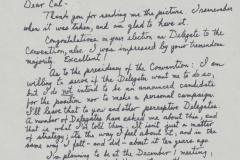 Dear Cal -
Thank you for sending me the picture. I remember
when it was taken, and am glad to have it.
Congratulations on your election as Delegate to the
Convention, also. I was impressed by your tremendous
majority. Excellent!
As to the presidency of the Convention: I am
willing to serve if the Delegates want me to do so,
but I do not intend to be an announced candidate
for the position nor to make a personal campaign.
I'll leave that to you and other perceptive Delegates.
A number of Delegates have asked me about this, and
that is what I've told them. It is not just a matter
of strategy; it's the way I feel about it, and is the
same way I felt - and did - about it ten years ago.
I'm planning to be at the December 1 meeting,